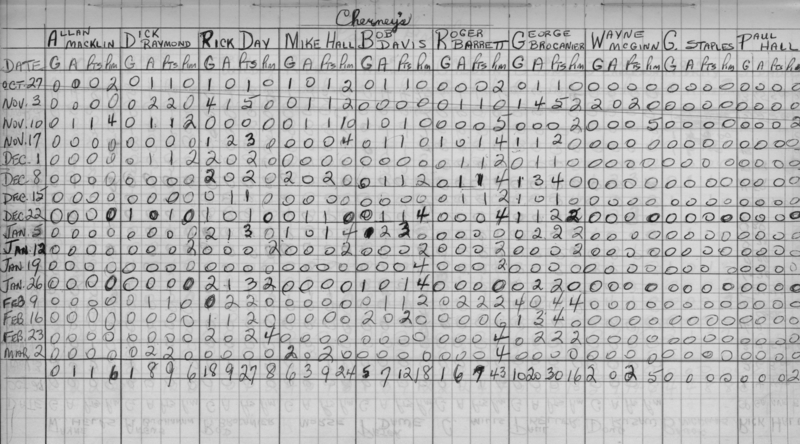 Cherney's
ALLAN MACKLIN DICK RAYMOND RICK DAY MIKE HALL BOB DAVIS ROGER BARRETT GEORGE BROCANIER WAYNE McGINN G. STAPLES PAUL HALL
DATE G A Pts Pim G A Pts Pim G A Pts Pim G A Pts Pim G A Pts Pim G A Pts Pim G A Pts Pim G A Pts Pim G A Pts Pim G A Pts Pim
OCT. 27 0 0 0 2 0 1 1 0 1 0 1 0 1 0 1 2 0 1 1 0 0 0 0 2 0 1 1 0 0 0 0 0 0 0 0 0 0 0 0 0
NOV. 3 0 0 0 0 0 2 2 0 4 1 5 0 0 1 1 2 0 0 0 0 0 1 1 0 1 4 5 2 2 0 2 0 0 0 0 0 0 0 0 0
NOV. 10 0 1 1 4 0 1 1 2 0 0 0 0 0 1 1 10 1 0 1 0 0 0 0 5 0 0 0 2 0 0 0 5 0 0 0 0 0 0 0 2
NOV. 17 0 0 0 0 0 0 0 0 1 2 3 0 0 0 0 4 0 1 1 0 1 0 1 4 1 1 2 0 0 0 0 0 0 0 0 0 0 0 0 0
DEC. 1 0 0 0 0 0 1 1 2 2 0 2 0 0 0 0 0 0 0 0 0 0 1 1 2 0 1 1 0 0 0 0 0 0 0 0 0 0 0 0 0
DEC. 8 0 0 0 0 0 0 0 0 2 0 2 0 2 0 2 0 0 1 1 2 0 1 1 4 1 3 4 0 0 0 0 0 0 0 0 0 0 0 0 0
DEC. 15 0 0 0 0 0 0 0 0 0 1 1 0 0 0 0 0 0 0 0 0 0 1 1 2 1 0 1 0 0 0 0 0 0 0 0 0 0 0 0 0
DEC. 22 0 0 0 0 1 0 1 0 1 0 1 0 0 1 1 0 0 1 1 4 0 0 0 4 1 1 2 2 0 0 0 0 0 0 0 0 0 0 0 0
JAN. 5 0 0 0 0 0 0 0 0 2 1 3 0 1 0 1 4 0 2 2 0 0 0 0 0 0 2 2 2 0 0 0 0 0 0 0 0 0 0 0 0
JAN. 12 0 0 0 0 0 0 0 2 0 0 0 2 0 0 0 2 0 0 0 2 0 0 0 2 0 0 0 2 0 0 0 0 0 0 0 0 0 0 0 0
JAN. 19 0 0 0 0 0 0 0 0 0 0 0 0 0 0 0 0 0 0 0 4 0 0 0 2 0 0 0 0 0 0 0 0 0 0 0 0 0 0 0 0
JAN. 26 0 0 0 0 0 0 0 0 2 1 3 2 0 0 0 0 1 0 1 4 0 0 0 0 0 2 2 0 0 0 0 0 0 0 0 0 0 0 0 0
FEB. 9 0 0 0 0 0 1 1 0 0 2 2 0 0 0 0 0 0 1 1 2 0 2 2 2 4 0 4 4 0 0 0 0 0 0 0 0 0 0 0 0
FEB. 16 0 0 0 0 0 0 0 0 1 1 2 0 0 0 0 0 2 0 2 0 0 0 0 6 1 3 4 0 0 0 0 0 0 0 0 0 0 0 0 0
FEB. 23 0 0 0 0 0 0 0 0 2 0 2 4 0 0 0 0 0 0 0 0 0 0 0 4 0 2 2 2 0 0 0 0 0 0 0 0 0 0 0 0
MAR. 2 0 0 0 0 0 2 2 0 0 0 0 0 2 0 2 0 0 0 0 0 0 0 0 4 0 0 0 0 0 0 0 0 0 0 0 0 0 0 0 0
0 1 1 6 1 8 9 6 18 9 27 8 6 3 9 24 5 7 12 18 1 6 7 43 10 20 30 16 2 0 2 5 0 0 0 0 0 0 0 2